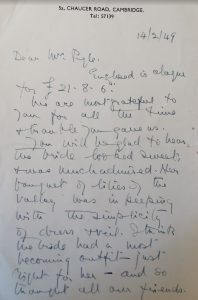 5a, CHAUCER ROAD, CAMBRIDGE.
Tel: 57139
14/2/49
Dear Mr. Pyle,
Enclosed is cheque
for £21-8-6.
We are most grateful to
you for all the time
& trouble you gave us.
You will be glad to hear
the bride looked sweet
& was much admired. Her
bouquet of lilies of the
valley was in keeping
with the simplicity
of dress & veil. I think
the bride had a most
becoming outfit - just
right for her - and so
thought all our friends.